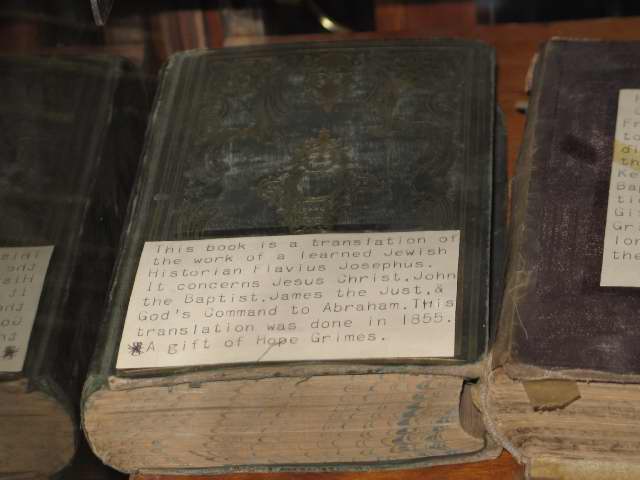 This book is a translation of
the work of a learned Jewish
Historian Flavius Josephus.
It concerns Jesus Christ,John
the Baptist,James the Just,&
God's Command to Abraham.THis
translation was done in 1855.
A gift of Hope Grimes.
Fr
to
di
Ke
Ba
ti
Gi
Gri
lon
the